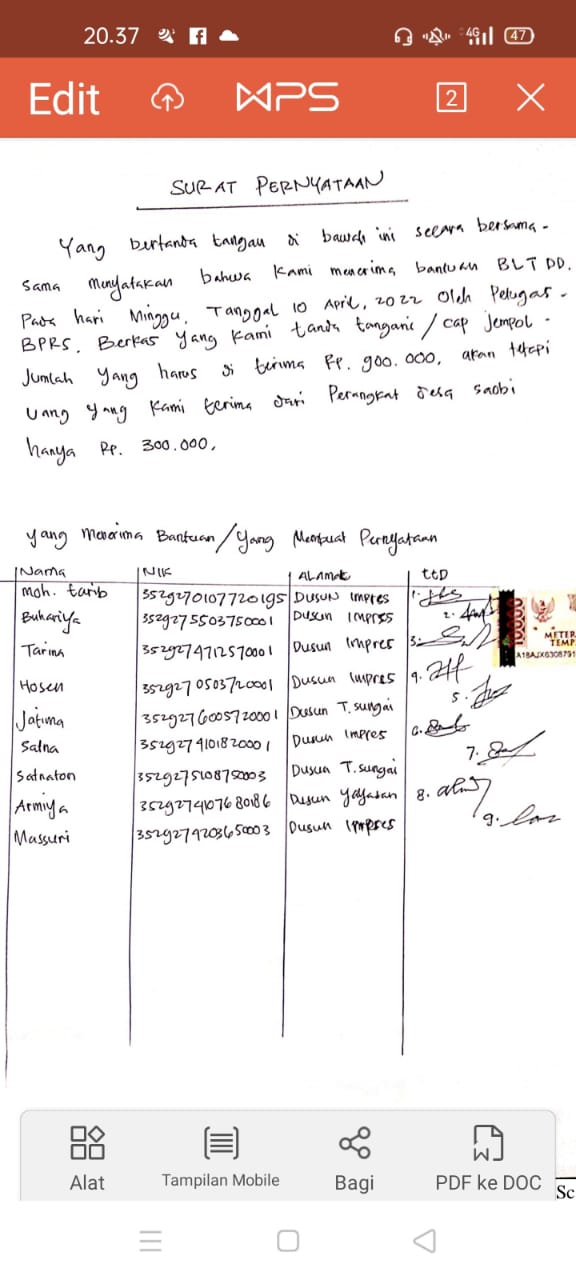 20.37
4G 47
Edit WPS 2
SURAT PERNYATAAN
Yang bertanda tangan di bawah ini secara bersama-
sama menyatakan bahwa kami menerima bantuan BLT DD.
Pada hari Minggu, Tanggal 10 April, 2022 oleh Petugas-
BPRS. Berkas yang kami tanda tangani / cap Jempol -
Jumlah yang harus di terima Rp. 900.000, akan tetapi
uang yang kami terima dari Perangkat desa saobi
hanya Rp. 300.000,
yang menerima Bantuan / yang Membuat Pernyataan
Nama NIK ALAMAt ttD
moh. tarib 3529270107720195 DUSUN Impres 1.
Buhariya 3529275503750001 Dusun IMPRES 2.
Tarina 3529274712570001 Dusun Impres 3.
Hosen 3529270503720001 Dusun Impres 4.
Jatima 3529276005720001 Dusun T. sungai 5.
Salna 3529274101820001 Dusun Impres 6.
Satnaton 3529275108750003 Dusun T. sungai 7.
Armiya 3529274107680186 Dusun Yayasan 8.
Massuri 3529274203650003 Dusun Impres 9.
10000
METER
TEMP
A18AJX6308791
Alat Tampilan Mobile Bagi PDF ke DOC
Sc